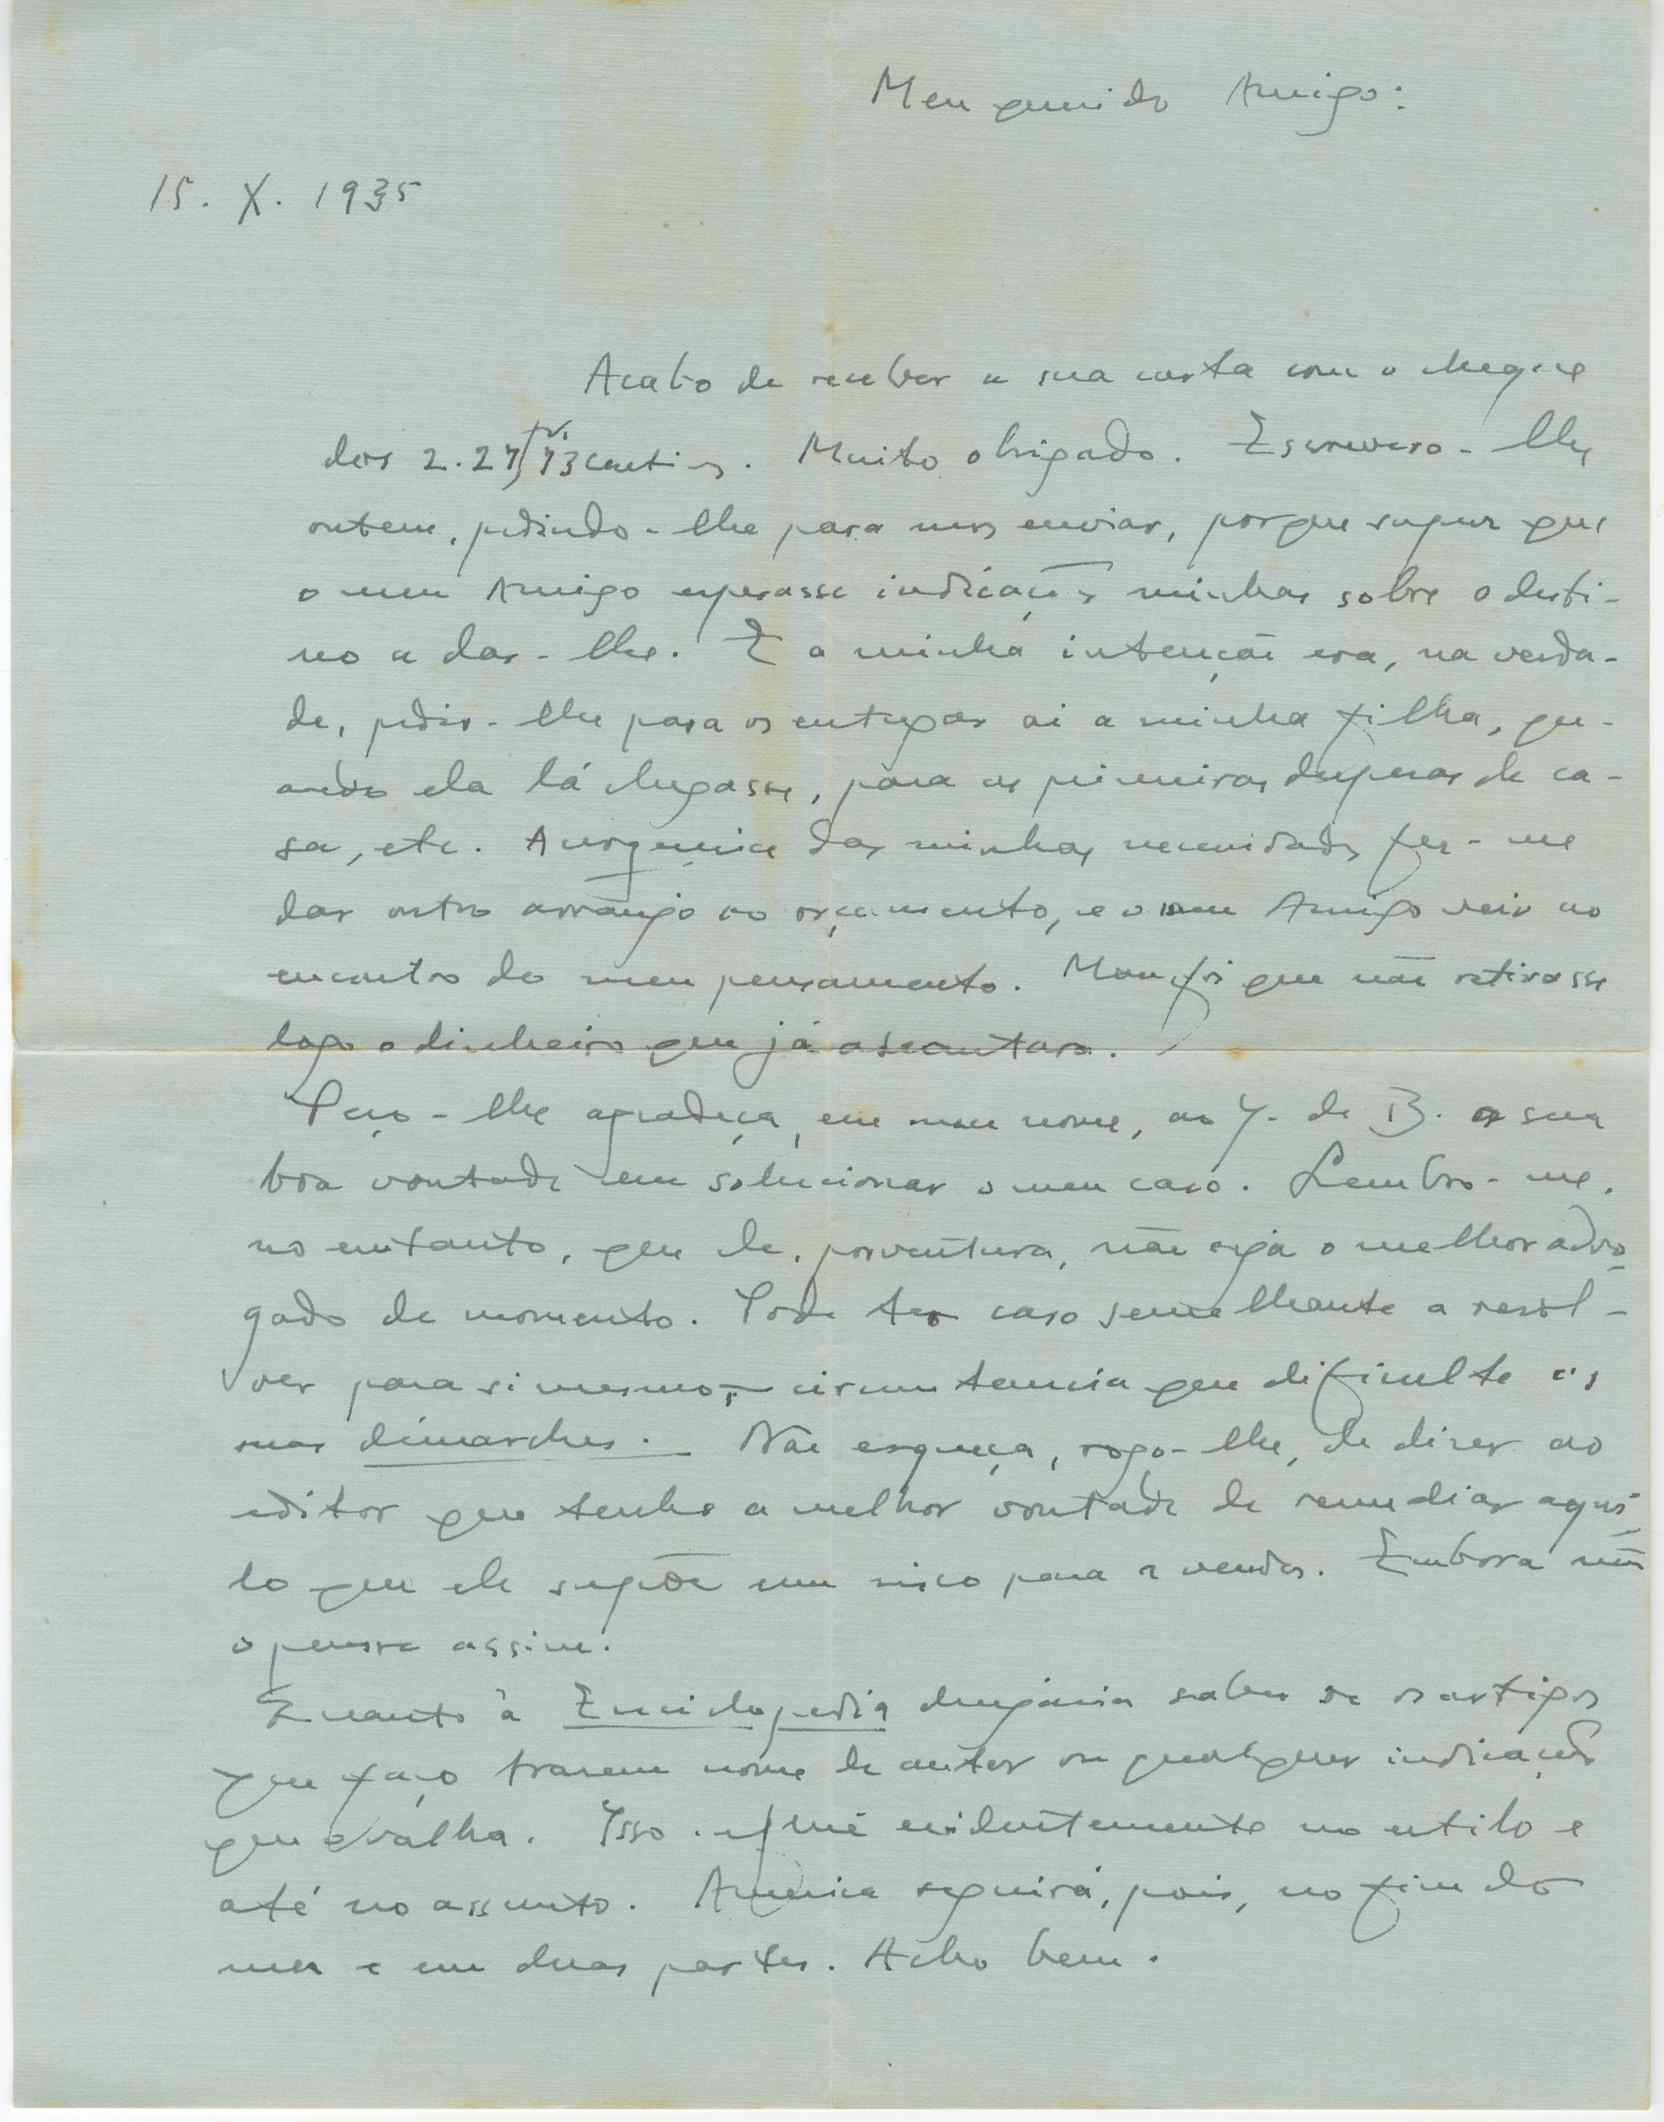 Meu querido Amigo:
15. X. 1935
Acabo de receber a sua carta com o cheque
dos 2.27 frs, 73 centims. Muito obrigado. Escrevera-lhe
ontem, pedindo-lhe para mos enviar, porque supuz que
o meu Amigo esperasse indicações minhas sobre o desti-
no a dar-lhe. E a minha intenção era, na verda-
de, pedir-lhe para os entregar aí a minha filha, qu-
ando ela lá chegasse, para as primeiras despesas de ca-
sa, etc. A urgencia das minhas necessidades fez-me
dar outro arranjo ao orçamento, e o meu Amigo veio ao
encontro do meu pensamento. Mau foi que não retirasse
logo o dinheiro que já adeantara.
Peço-lhe agradeça, em meu nome, ao Y. de B. a sua
boa vontade em solucionar o meu caso. Lembro-me,
no entanto, que ele, porventura, não seja o melhor advo-
gado de momento. Pode ter caso semelhante a resol-
ver para si mesmo, circumstancia que dificulte as
suas démarches. Não esqueça, rogo-lhe, de dizer ao
editor que tenho a melhor vontade de remediar aqui-
lo que ele supõe um risco para a venda. Embora não
o pense assim.
Quanto à Enciclopedia desejaria saber se os artigos
que faço trazem nome de autor ou qualquer indicação
que o valha. Isso influe evidentemente no estilo e
até no assunto. America seguirá, pois, no fim do
mez e em duas partes. Acho bem.